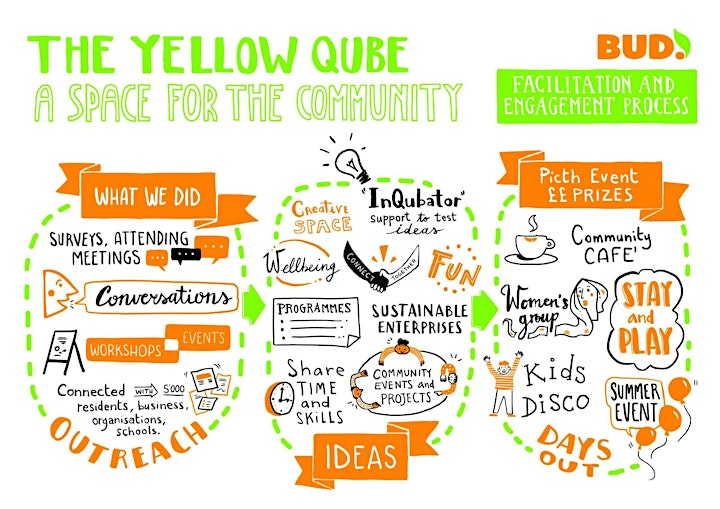 THE YELLOW QUBE
A SPACE FOR THE COMMUNITY
BUD.
FACILITATION AND
ENGAGEMENT PROCESS
WHAT WE DID
SURVEYS, ATTENDING
MEETINGS
Conversations
WORKSHOPS
EVENTS
Connected WITH 5000
residents, business,
organisations,
schools.
OUTREACH
CREATIVE
SPACE
"InQubator"
support to test
ideas
Wellbeing
CONNECT
TOGETHER
FUN
PROGRAMMES
SUSTAINABLE
ENTERPRISES
Share
TIME
and
SKILLS
COMMUNITY
EVENTS and
PROJECTS
IDEAS
Picth Event
££ PRIZES
Community
CAFE'
Women's
group
STAY
and
PLAY
Kids
DiSCO
SUMMER
EVENT
DAYS
OUT